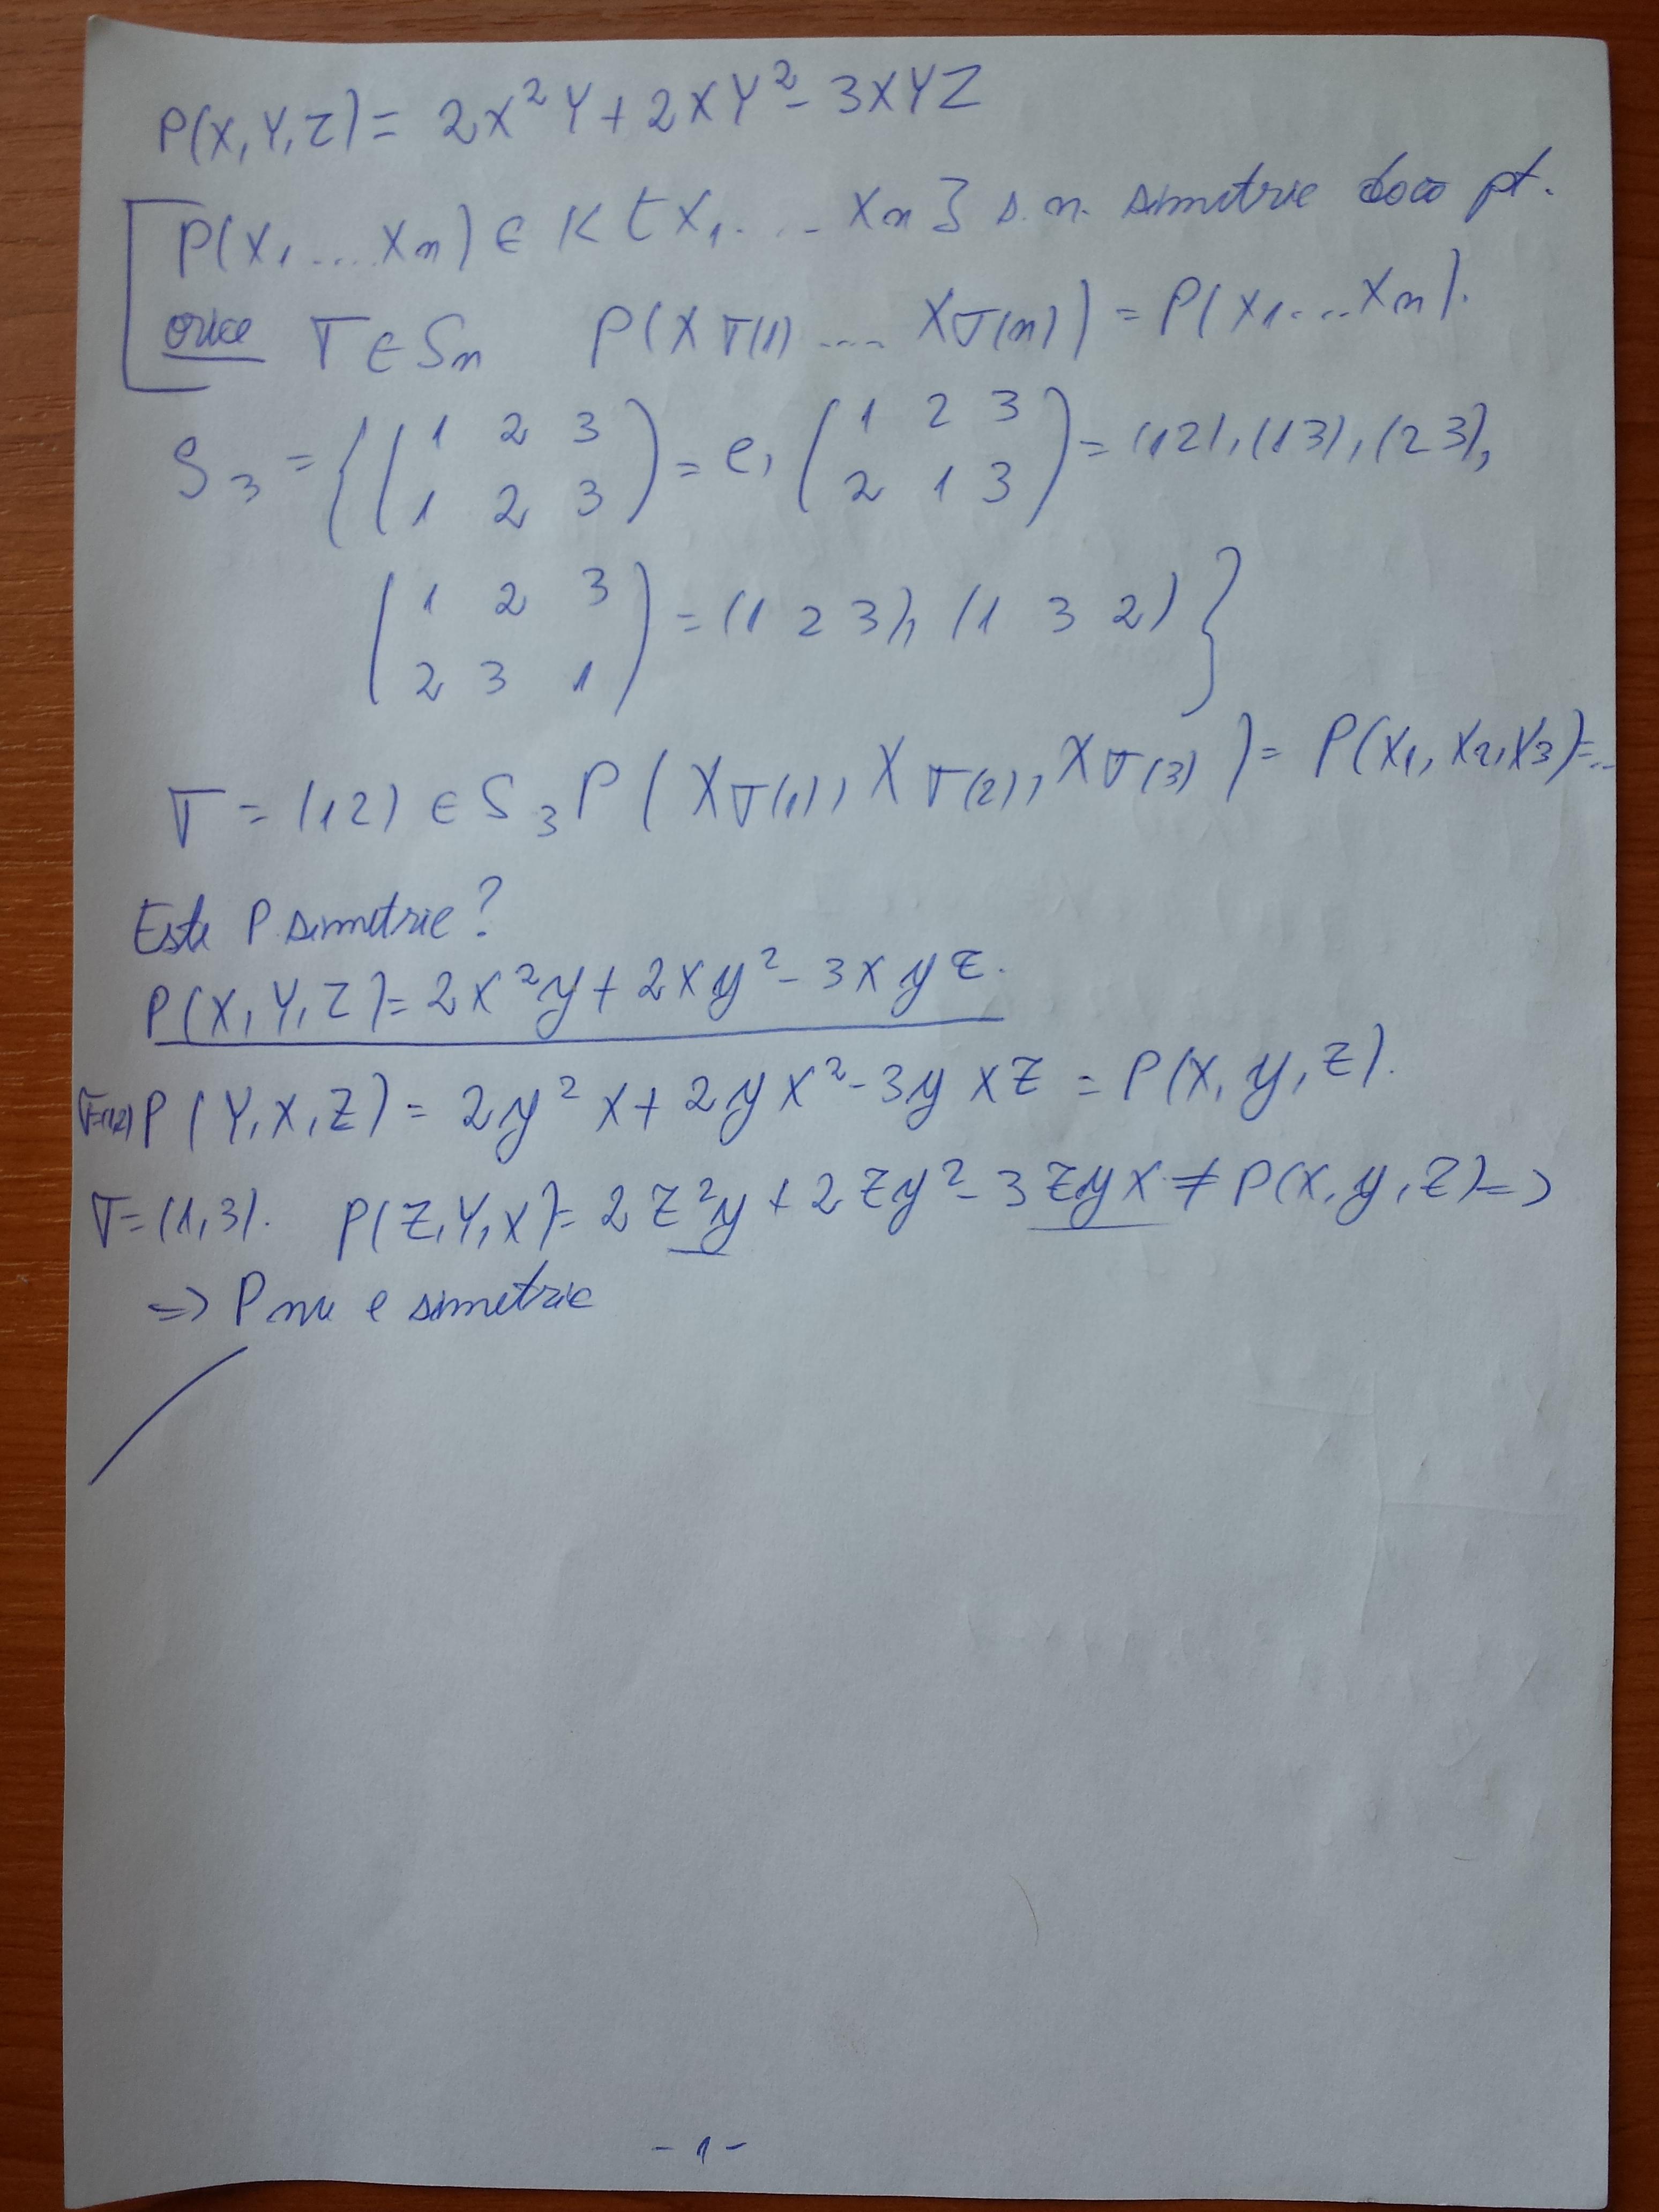 P(X,Y,Z)= 2X²Y+2XY²-3XYZ
P(X₁....Xₙ)∈K[X₁.... Xₙ] s.n. simetric dacă pt.
orice σ∈Sₙ P(X_σ(1) .... X_σ(n))=P(X₁...Xₙ).
S₃={(1 2 3
1 2 3)=e, (1 2 3
2 1 3)=(12),(13),(23),
(1 2 3
2 3 1)=(1 2 3), (1 3 2)}
σ=(12)∈S₃ P(X_σ(1), X_σ(2), X_σ(3))=P(X₁,X₂,X₃)=..
Este P simetric?
P(X,Y,Z)=2x²y+2xy²-3xyz.
σ=(12) P(Y,X,Z)=2y²x+2yx²-3yxz=P(x,y,z).
σ=(1,3). P(Z,Y,X)=2z²y+2zy²-3zyx≠P(x,y,z)=>
=> P nu e simetric
-1-